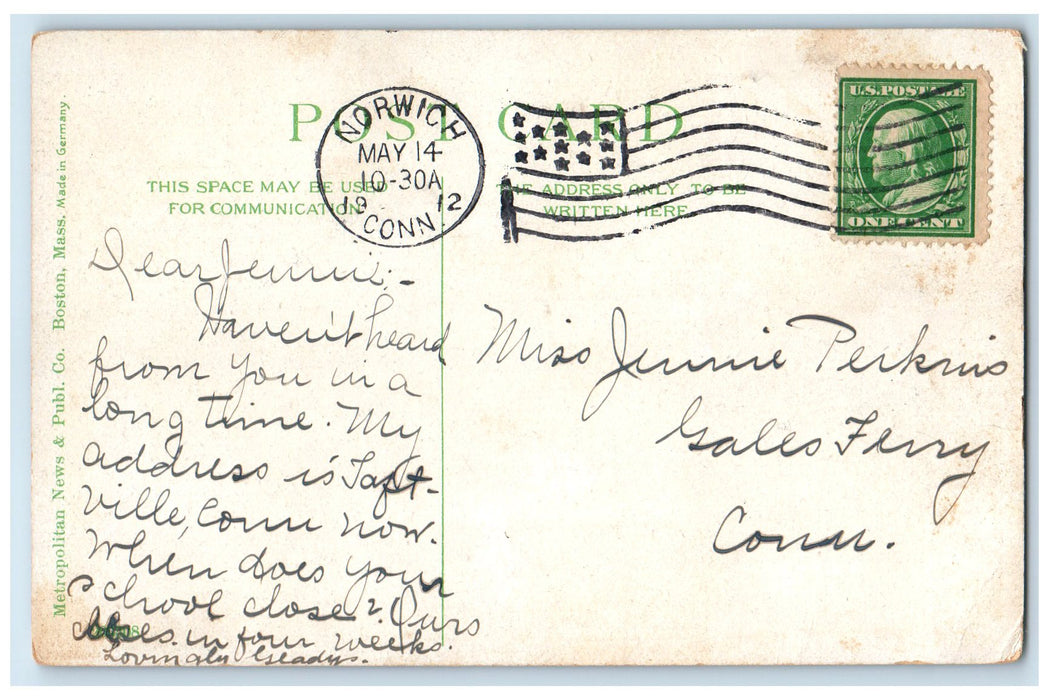 POST CARD
THIS SPACE MAY BE USED
FOR COMMUNICATION
THE ADDRESS ONLY TO BE
WRITTEN HERE
NORWICH
MAY 14
10-30A
19 12
CONN.
U.S. POSTAGE
ONE CENT
Metropolitan News & Publ. Co. Boston, Mass. Made in Germany.
Dear Jennie:-
Haven't heard
from you in a
long time. My
address is Taft-
ville, Conn now.
When does your
school close? Ours
closes in four weeks.
Lovingly Gladys.
Miss Jennie Perkins
Gales Ferry
Conn.